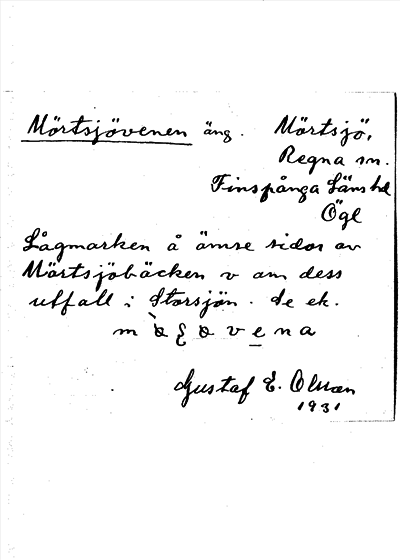 Mörtsjövenen äng. Mörtsjö,
Regna sn.
Finspånga Läns hd
Ögl
Lågmarken å ömse sidor av
Mörtsjöbäcken v om dess
utfall i Storsjön. Se ek.
Gustaf E. Olsson
1931